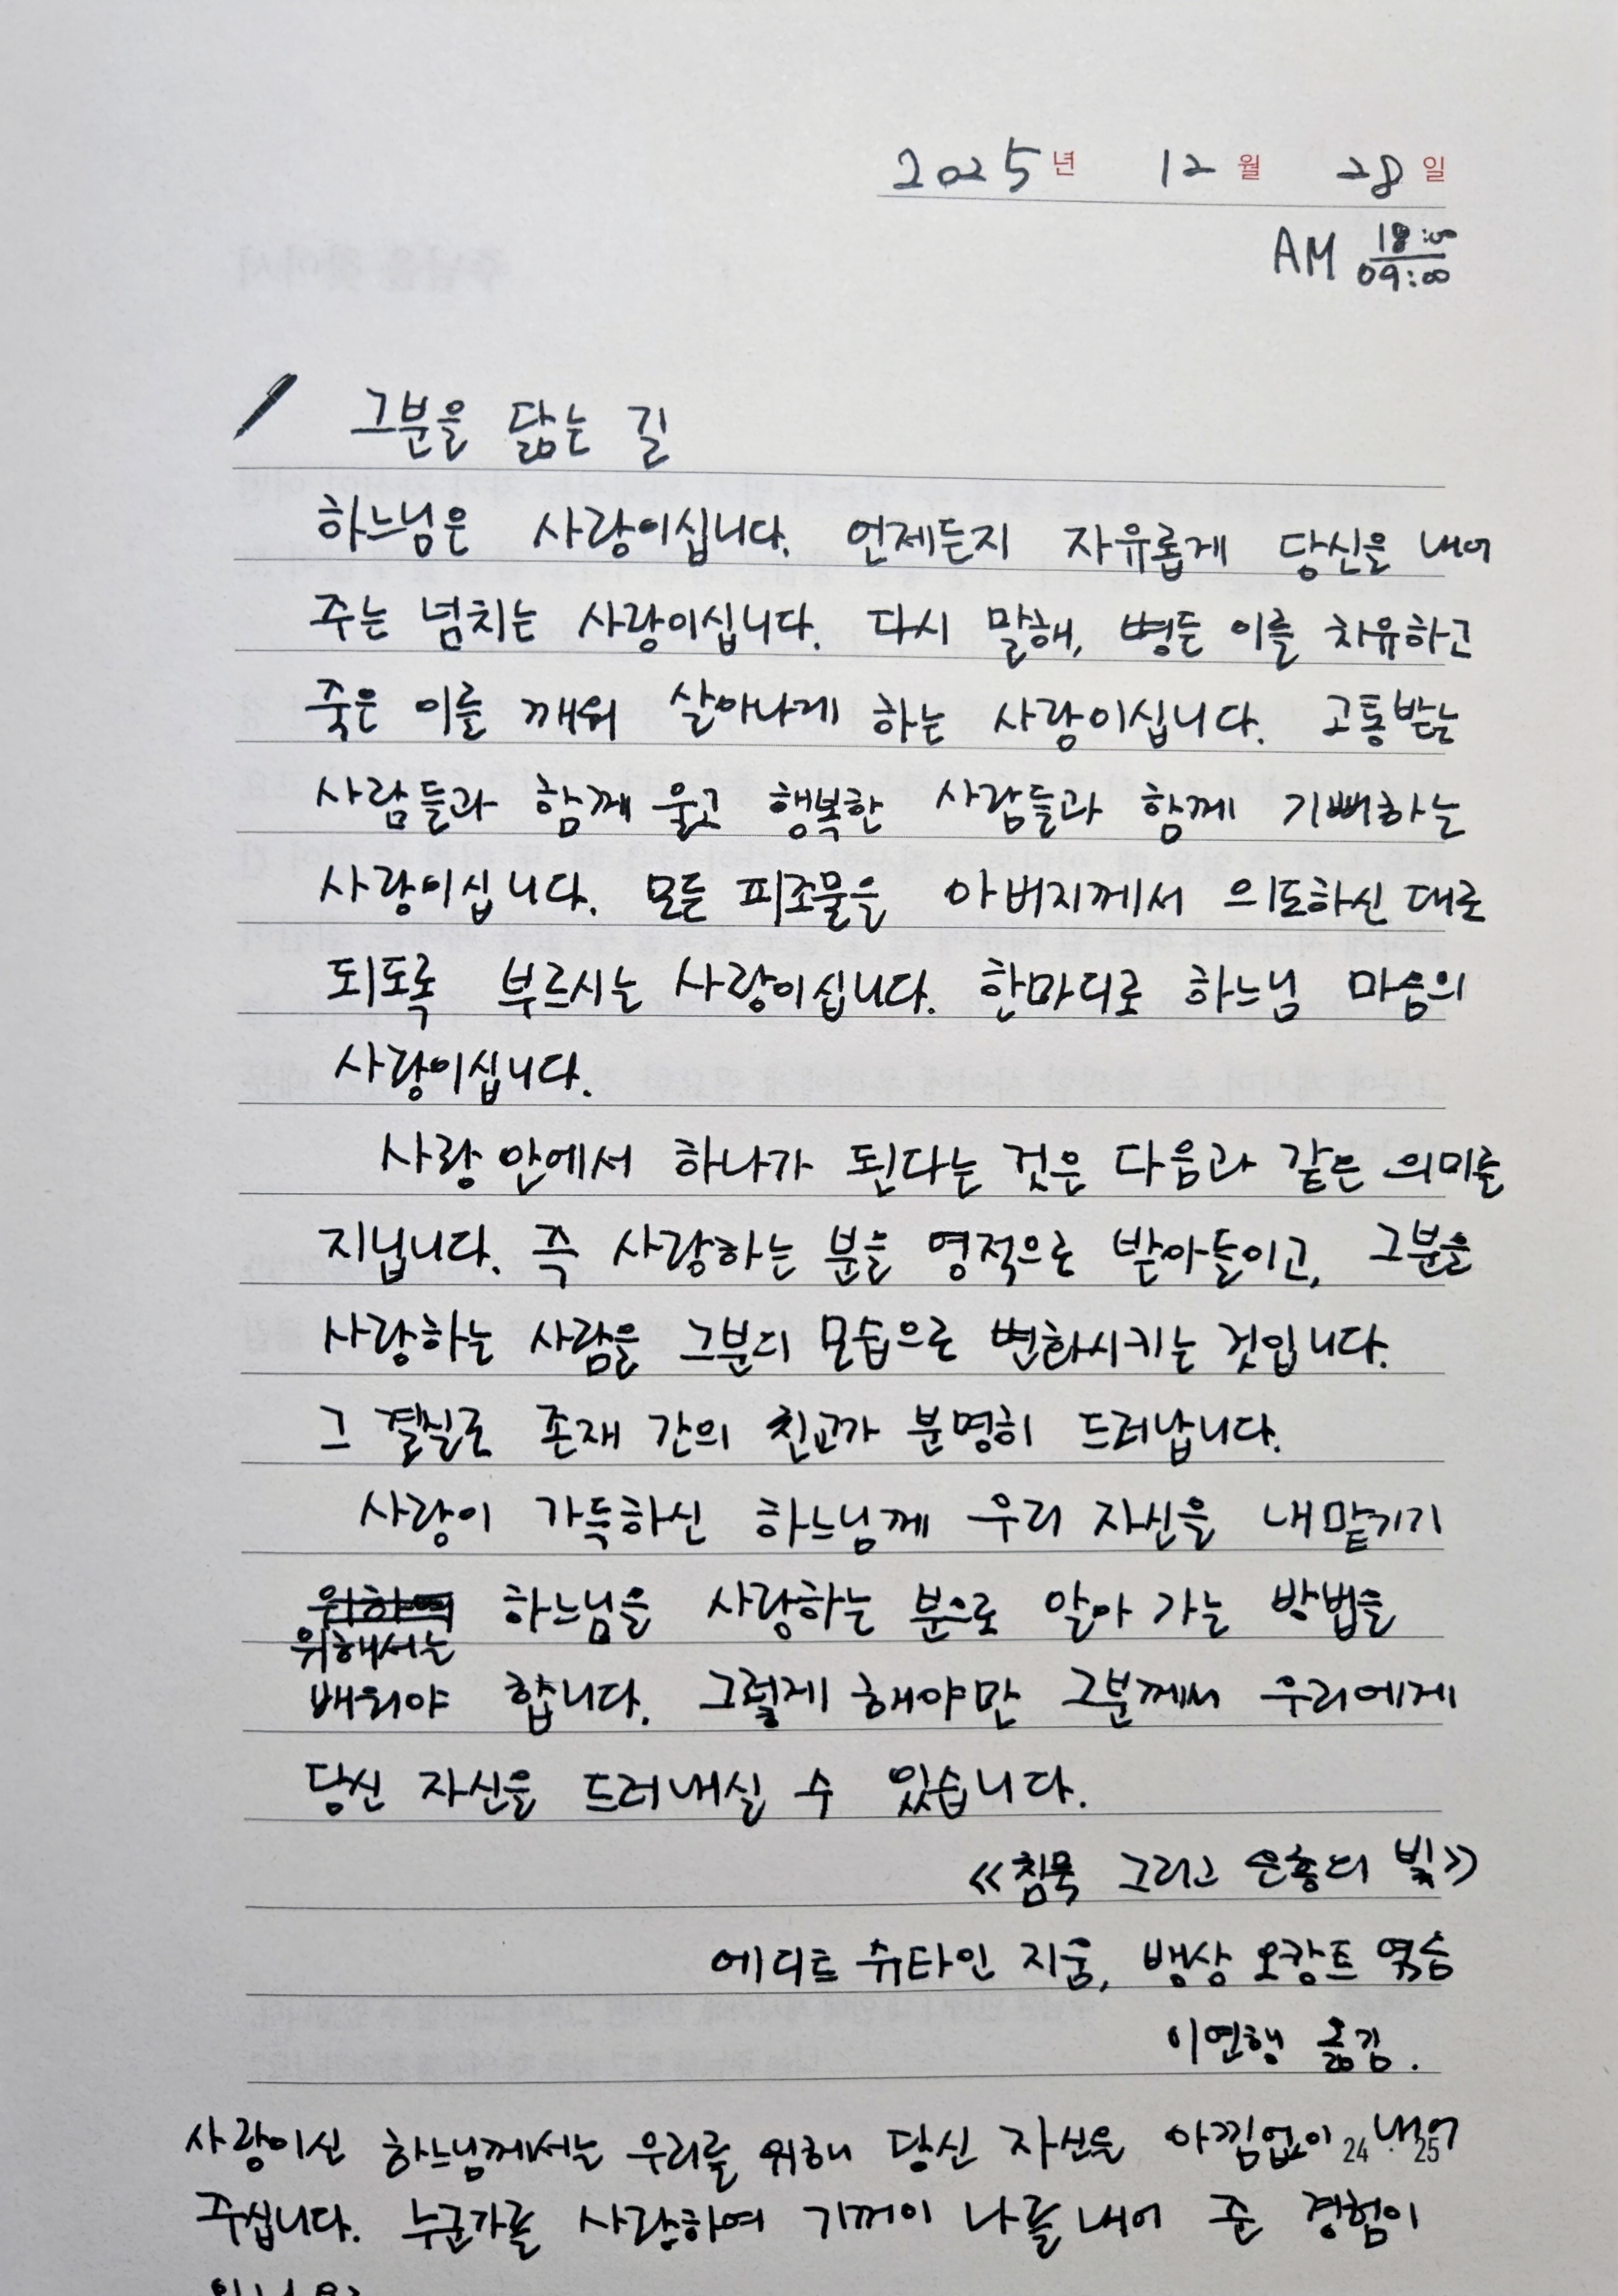 2025년 12월 28일
AM 18:00
09:00
그분을 닮는 길
하느님은 사랑이십니다. 언제든지 자유롭게 당신을 내어
주는 넘치는 사랑이십니다. 다시 말해, 병든 이를 치유하고
죽은 이를 깨워 살아나게 하는 사랑이십니다. 고통받는
사람들과 함께 울고 행복한 사람들과 함께 기뻐하는
사랑이십니다. 모든 피조물을 아버지께서 의도하신 대로
되도록 부르시는 사랑이십니다. 한마디로 하느님 마음의
사랑이십니다.
사랑 안에서 하나가 된다는 것은 다음과 같은 의미를
지닙니다. 즉 사랑하는 분을 영적으로 받아들이고, 그분을
사랑하는 사람을 그분의 모습으로 변화시키는 것입니다.
그 결실로 존재 간의 친교가 분명히 드러납니다.
사랑이 가득하신 하느님께 우리 자신을 내맡기기
위하여 하느님을 사랑하는 분으로 알아 가는 방법을
위해서는
배워야 합니다. 그렇게 해야만 그분께서 우리에게
당신 자신을 드러내실 수 있습니다.
《침묵 그리고 은총의 빛》
에디트 슈타인 지음, 뱅상 오캉트 엮음
이연행 옮김.
사랑이신 하느님께서는 우리를 위해 당신 자신을 아낌없이 내어
24 · 25
주십니다. 누군가를 사랑하여 기꺼이 나를 내어 준 경험이